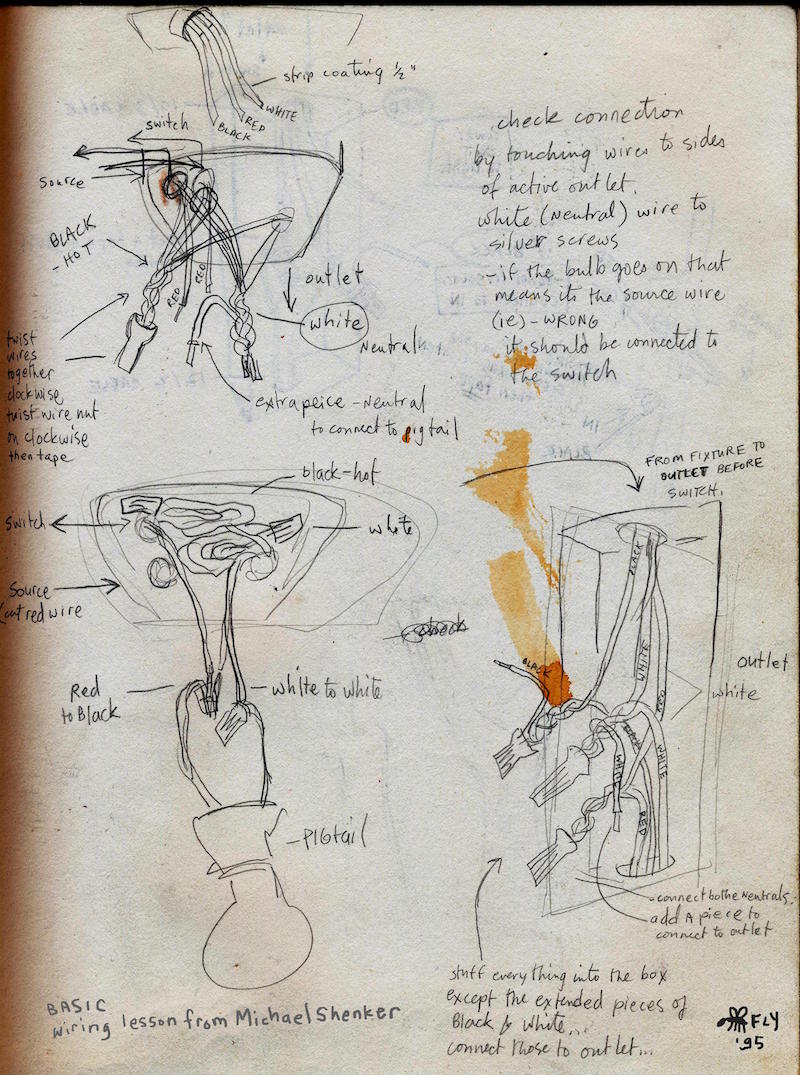 strip coating ½"
WHITE
RED
BLACK
switch
source
BLACK
- HOT
RED
RED
outlet
white
Neutral
twist
wires
together
clockwise,
twist wire nut
on clockwise
then tape
extra peice - Neutral
to connect to pigtail
check connection
by touching wires to sides
of active outlet.
white (Neutral) wire to
silver screws
- if the bulb goes on that
means its the source wire
(ie) - WRONG
it should be connected to
the switch
black-hot
switch
white
Source
cut red wire
Red
to Black
white to white
- PIGtail
FROM FIXTURE TO
OUTLET BEFORE
SWITCH.
BLACK
WHITE
RED
BLACK
outlet
white
BLACK
WHITE
WHITE
RED
- connect bothe Neutrals.
add A piece to
connect to outlet
stuff everything into the box
except the extended pieces of
Black & White...
connect those to outlet...
BASIC
wiring lesson from Michael Shenker
FLY
'95